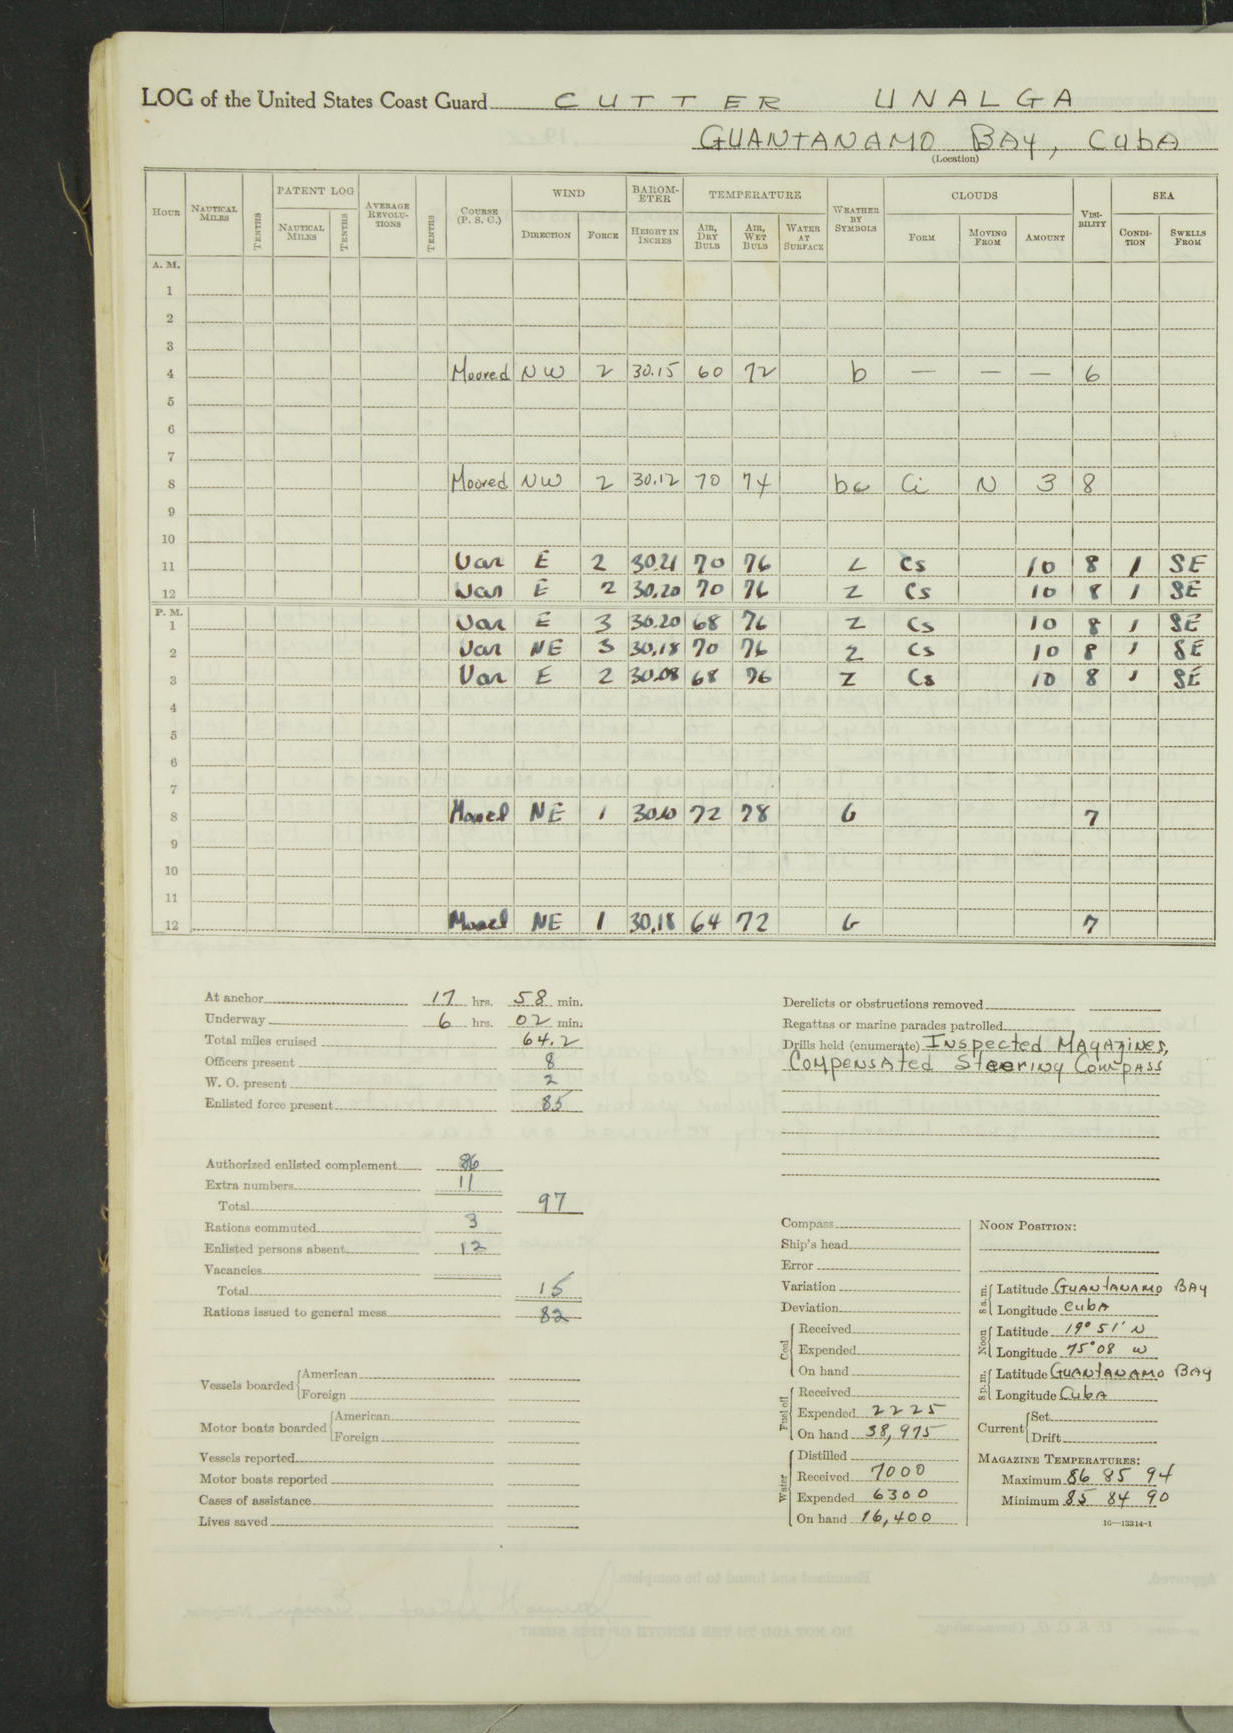 LOG of the United States Coast Guard CUTTER UNALGA
GUANTANAMO BAY, CUBA
(Location)
HOUR NAUTICAL MILES TENTHS PATENT LOG NAUTICAL MILES TENTHS AVERAGE REVOLU-TIONS TENTHS COURSE (P. S. C.) WIND DIRECTION FORCE BAROM-ETER HEIGHT IN INCHES TEMPERATURE AIR, DRY BULB AIR, WET BULB WATER AT SURFACE WEATHER BY SYMBOLS CLOUDS FORM MOVING FROM AMOUNT VISI-BILITY SEA CONDI-TION SWELLS FROM
A. M.
1
2
3
4 Moored NW 2 30.15 60 72 b — — — 6
5
6
7
8 Moored NW 2 30.12 70 74 bc Ci N 3 8
9
10
11 Var E 2 30.21 70 76 Z Cs 10 8 1 SE
12 Var E 2 30.20 70 76 Z Cs 10 8 1 SE
P. M.
1 Var E 3 30.20 68 76 Z Cs 10 8 1 SE
2 Var NE 3 30.18 70 76 Z Cs 10 8 1 SE
3 Var E 2 30.08 68 76 Z Cs 10 8 1 SE
4
5
6
7
8 NE 1 30.10 72 78 7
9
10
11
12 NE 1 30.18 64 72 7
At anchor 17 hrs. 58 min.
Underway 6 hrs. 02 min.
Total miles cruised 64.2
Officers present 8
W. O. present 2
Enlisted force present 85
Authorized enlisted complement 86
Extra numbers 11
Total 97
Rations commuted 3
Enlisted persons absent 12
Vacancies
Total 15
Rations issued to general mess 82
Vessels boarded American
Foreign
Motor boats boarded American
Foreign
Vessels reported
Motor boats reported
Cases of assistance
Lives saved
Derelicts or obstructions removed
Regattas or marine parades patrolled
Drills held (enumerate) Inspected Magazines,
Compensated Steering Compass
Compass
Ship's head
Error
Variation
Deviation
Coal Received
Expended
On hand
Fuel oil Received
Expended 2225
On hand 38,975
Water Distilled
Received 7000
Expended 6300
On hand 16,400
NOON POSITION:
8 a. m. Latitude GUANTANAMO BAY
Longitude CUBA
Noon Latitude 19° 51' N
Longitude 75° 08 W
8 p. m. Latitude GUANTANAMO BAY
Longitude CUBA
Current Set
Drift
MAGAZINE TEMPERATURES:
Maximum 86 85 94
Minimum 85 84 90
16—13314-1